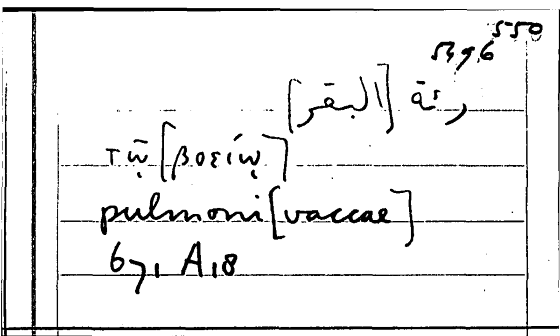 550
5396
رئة [البقر]
τῷ [βοείῳ]
pulmoni [vaccae]
67, A, 8